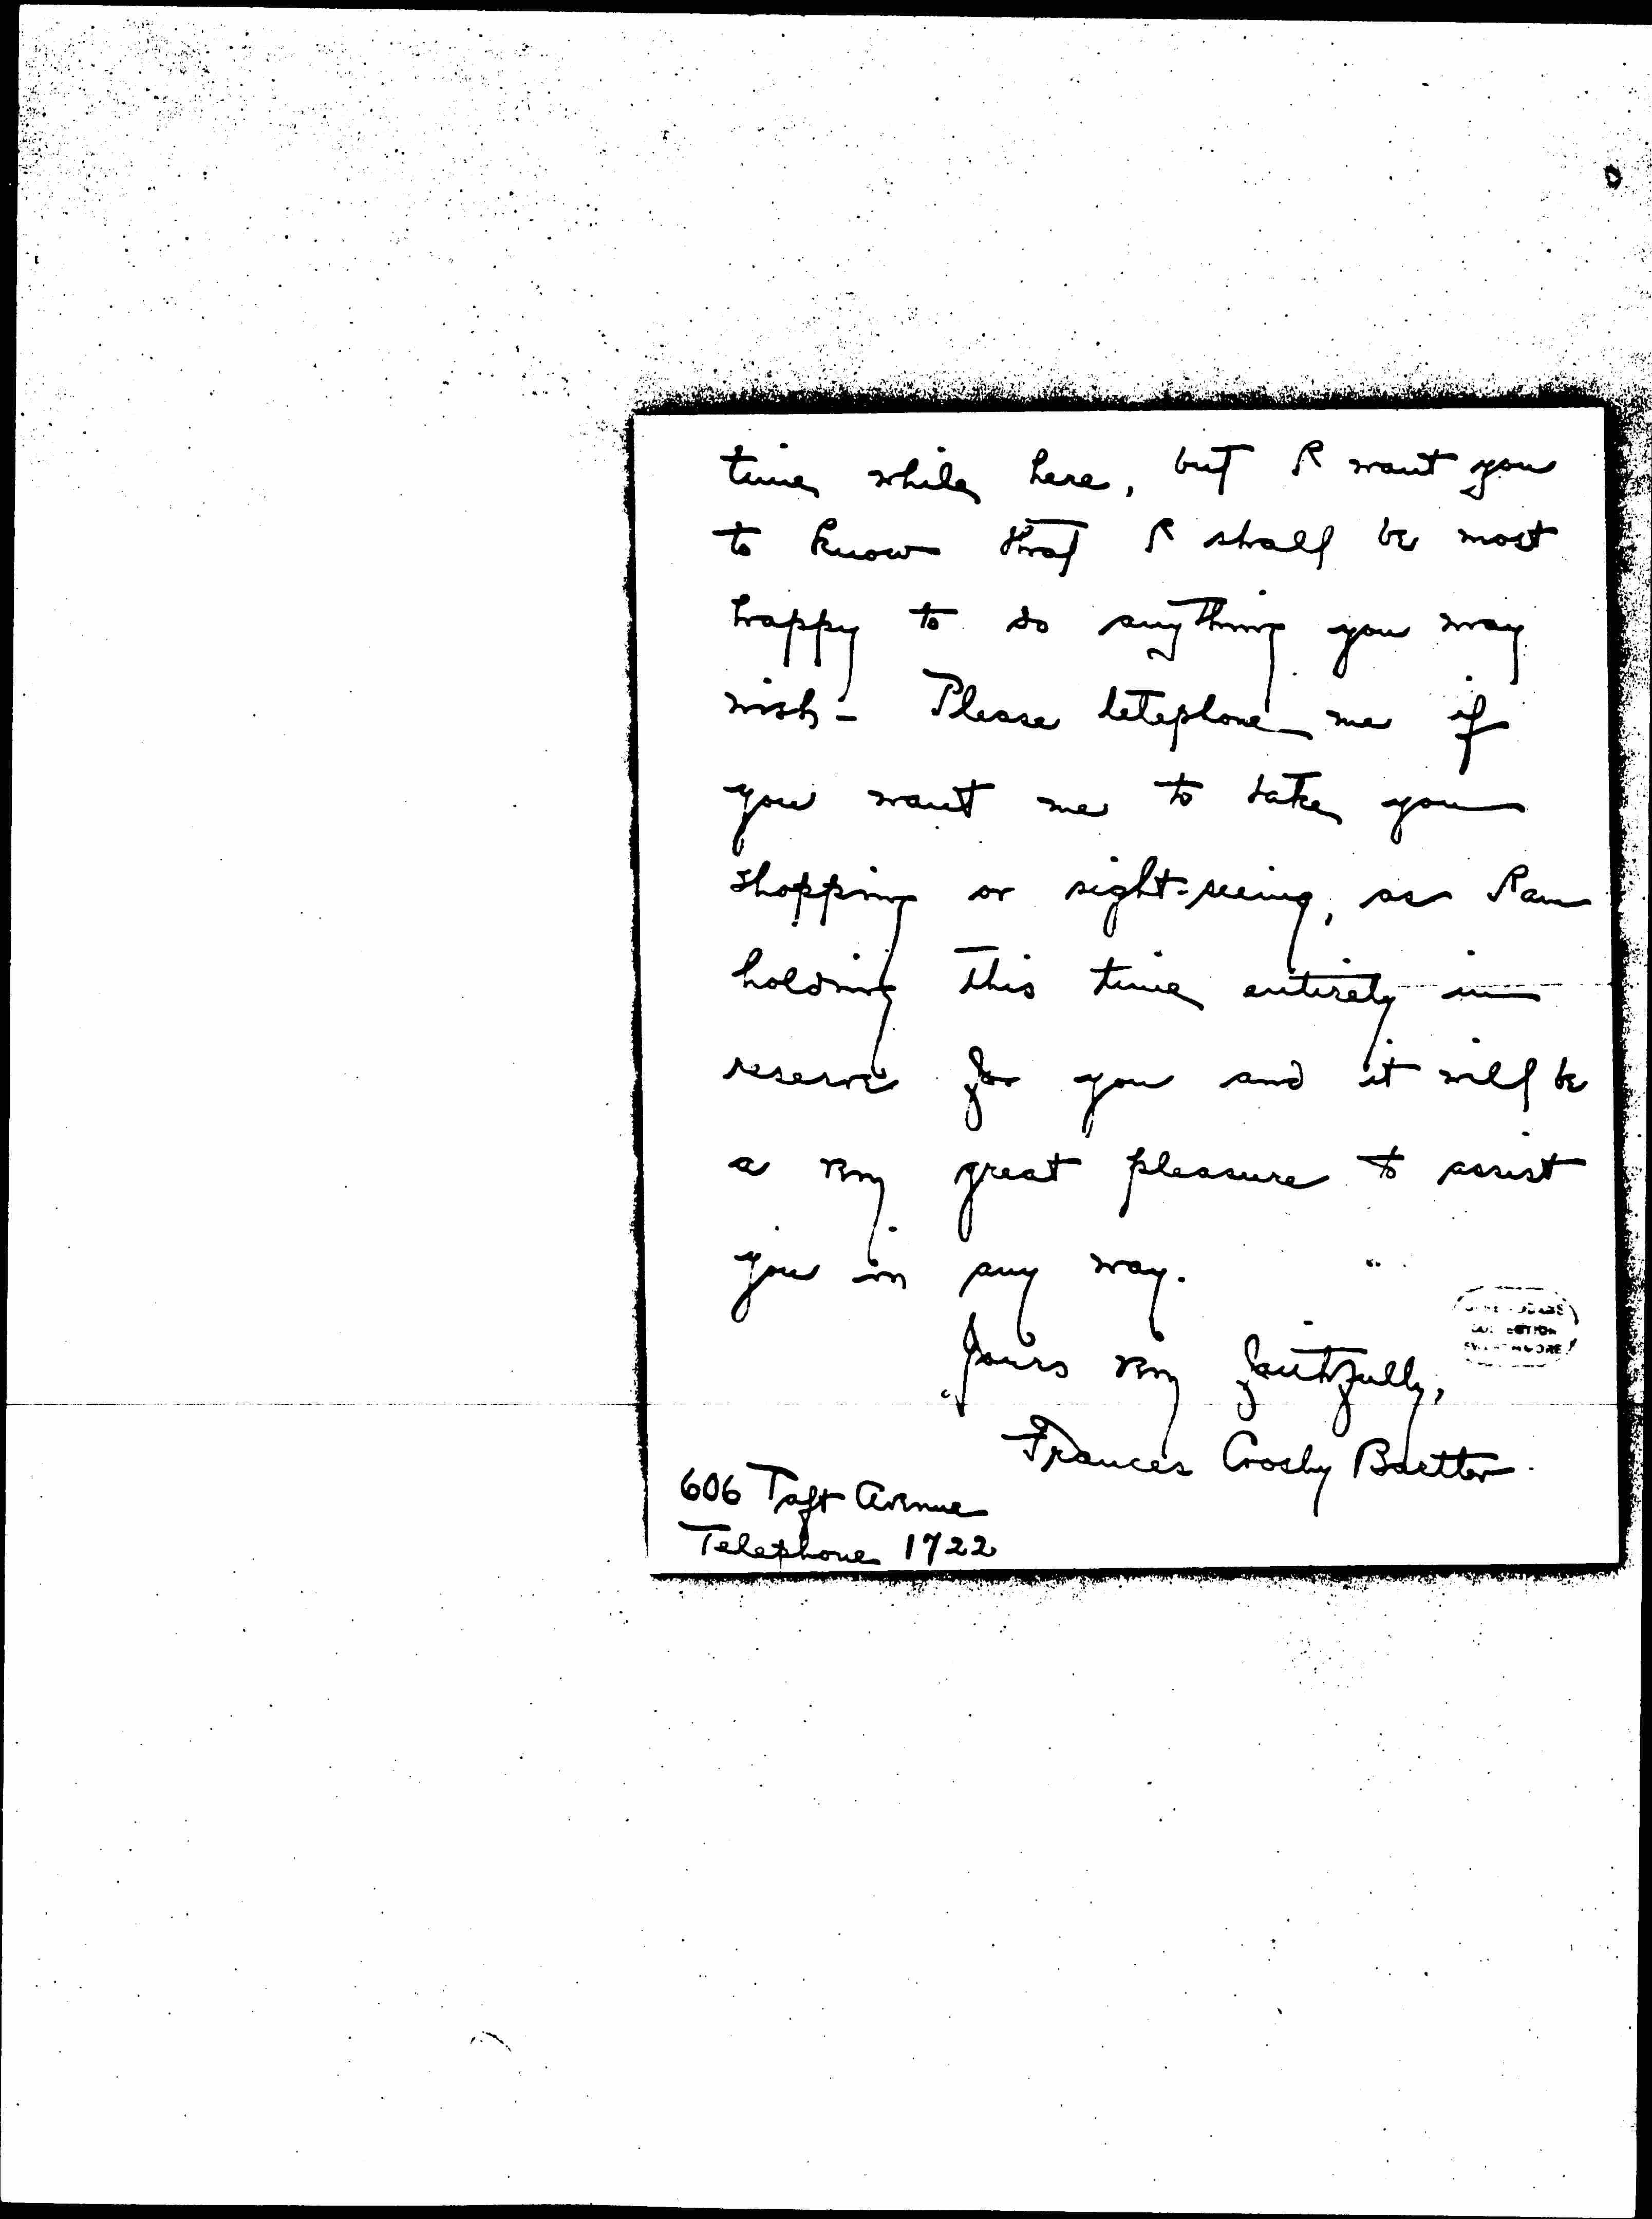 time while here, but I want you
to know that I shall be most
happy to do anything you may
wish - Please telephone me if
you want me to take you
shopping or sight-seeing, as I am
holding this time entirely in
reserve for you and it will be
a very great pleasure to assist
you in any way.
Yours very faithfully,
Frances Crosby Bartter.
606 Taft Avenue
Telephone 1722